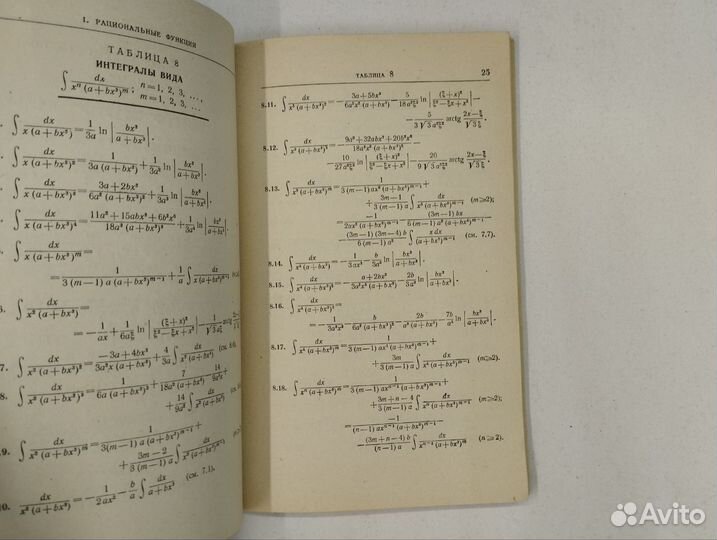 1. РАЦИОНАЛЬНЫЕ ФУНКЦИИ
ТАБЛИЦА 8
ИНТЕГРАЛЫ ВИДА
∫ dx / x^n (a + bx³)^m ; n = 1, 2, 3, ..., m = 1, 2, 3, ...
∫ dx / x (a + bx³) = 1/3a ln | bx³ / a + bx³ | .
∫ dx / x (a + bx³)² = 1 / 3a (a + bx³) + 1/3a² ln | bx³ / a + bx³ | .
∫ dx / x (a + bx³)³ = 3a + 2bx³ / 6a² (a + bx³)² + 1/3a³ ln | bx³ / a + bx³ | .
∫ dx / x (a + bx³)⁴ = 11a² + 15abx³ + 6b²x⁶ / 18a³ (a + bx³)³ + 1/3a⁴ ln | bx³ / a + bx³ | .
∫ dx / x (a + bx³)^m =
= 1 / 3 (m − 1) a (a + bx³)^{m−1} + 1/a ∫ dx / x (a + bx³)^{m−1}
6. ∫ dx / x² (a + bx³) =
= − 1/ax + 1/6aξ ln | (ξ + x)² / ξ² − ξx + x² | − 1/√3 aξ
7. ∫ dx / x² (a + bx³)² = −3a + 4bx³ / 3a²x (a + bx³) + 4/3a ∫ dx / x² (a + bx³)
8. ∫ dx / x² (a + bx³)³ = 1 / 6a (a + bx³)² + 7 / 18a² (a + bx³) − 14/9a³
+ 14/9a² ∫ dx / x² (a + bx³)
9. ∫ dx / x² (a + bx³)^m = 1 / 3 (m − 1) a (a + bx³)^{m−1} +
+ 3m − 2 / 3 (m − 1) a ∫ dx / x² (a + bx³)^{m−1}
10. ∫ dx / x³ (a + bx³) = − 1/2ax² − b/a ∫ dx / a + bx³ (см. 7.1).
ТАБЛИЦА 8 25
8.11. ∫ dx / x³ (a + bx³)² = − 3a + 5bx³ / 6a²x² (a + bx³) − 5 / 18a²ξ² ln | (ξ + x)² / ξ² − ξx + x² | −
− 5 / 3 √3 a²ξ² arctg 2x − ξ / √3 ξ .
8.12. ∫ dx / x³ (a + bx³)³ = − 9a² + 32abx³ + 20b²x⁶ / 18a³x² (a + bx³)² −
− 10 / 27a³ξ² ln | (ξ + x)² / ξ² − ξx + x² | − 20 / 9 √3 a³ξ² arctg 2x − ξ / √3 ξ .
8.13. ∫ dx / x³ (a + bx³)^m = 1 / 3 (m − 1) ax² (a + bx³)^{m−1} +
+ 3m − 1 / 3 (m − 1) a ∫ dx / x³ (a + bx³)^{m−1} (m ⩾ 2);
= −1 / 2ax² (a + bx³)^{m−1} − (3m − 1) bx / 6 (m − 1) a² (a + bx³)^{m−1}
(см. 7,7).
8.14. ∫ dx / x⁴ (a + bx³) = − 1/3ax³ − b/3a² ln | bx³ / a + bx³ | .
8.15. ∫ dx / x⁴ (a + bx³)² = − a + 2bx³ / 3a²x³ (a + bx³) − 2b/3a³ ln | bx³ / a + bx³ | .
8.16. ∫ dx / x⁴ (a + bx³)³ =
8.17. ∫ dx / x⁴ (a + bx³)^m = − 1 / 3 (m − 1) ax³ (a + bx³)^{m−1} +
+ 3m / 3 (m − 1) a ∫ dx / x⁴ (a + bx³)^{m−1} (m ⩾ 2).
8.18. ∫ dx / x^n (a + bx³)^m = 1 / 3 (m − 1) ax^{n−1} (a + bx³)^{m−1} +
+ 3m + n − 4 / 3 (m − 1) a ∫ dx / x^n (a + bx³)^{m−1} (m ⩾ 2);
= −1 / (n − 1) ax^{n−1} (a + bx³)^{m−1} −
− (3m + n − 4) b / (n − 1) a ∫ dx / x^{n−3} (a + bx³)^m (n ⩾ 2).
Avito